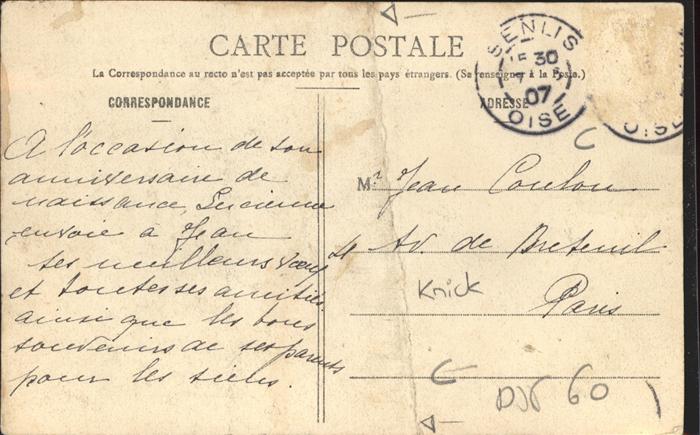 CARTE POSTALE
La Correspondance au recto n'est pas acceptée par tous les pays étrangers. (Se renseigner à la Poste.)
CORRESPONDANCE
ADRESSE
SENLIS
30
07
OISE
OISE
A l'occasion de son
anniversaire de
naissance, Lucienne
envoie à Jean
ses meilleurs vœux
et toutes ses amitiés
ainsi que les bons
souvenirs de ses parents
pour les siens.
Mr. Jean Coulon
Av. de Breteuil
Paris
Knick
60